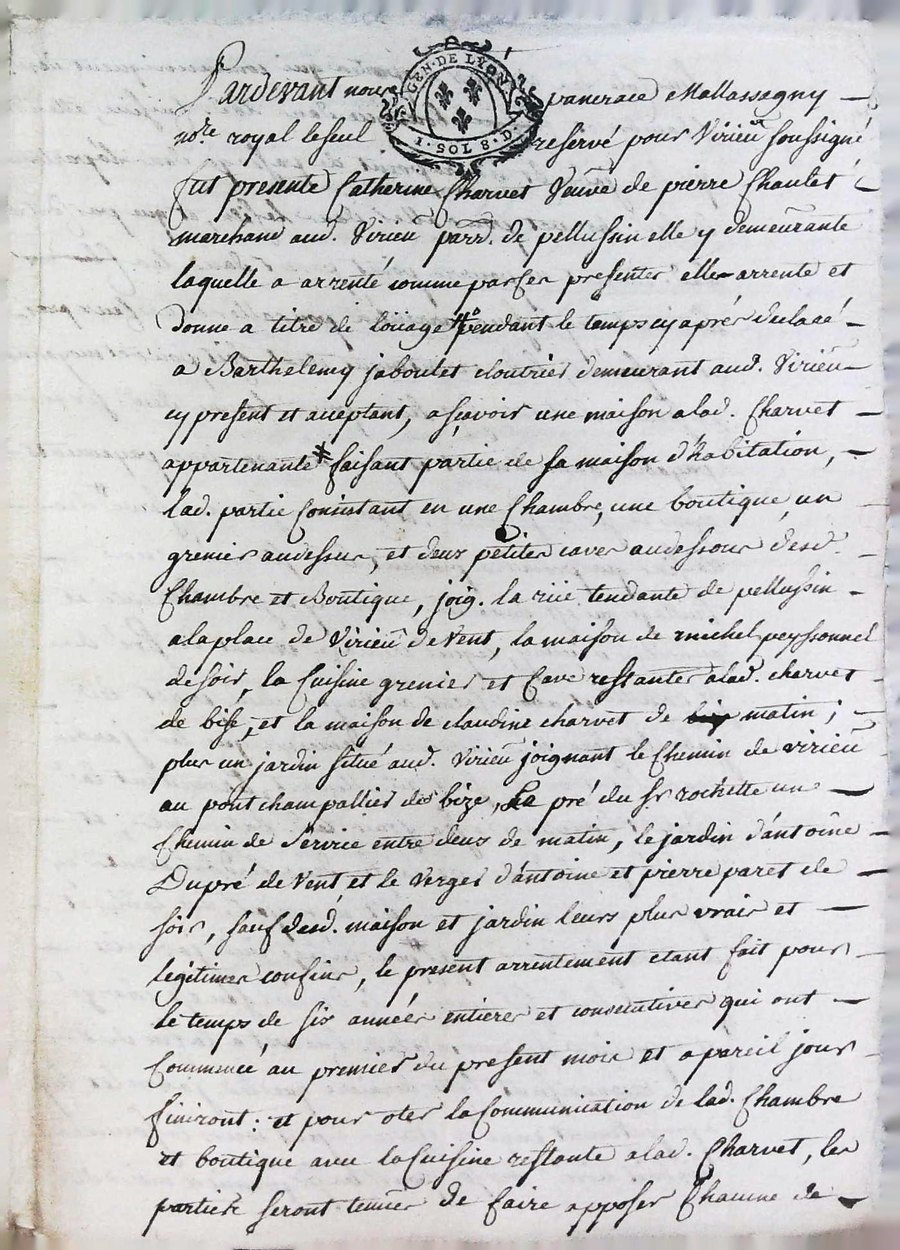 GEN. DE LYON
1. SOL 8. D.
Pardevant nous pancrace Mallassagny
nore. royal le seul reservé pour Virieu soussigné
fut presente Catherine Charvet Veuve de pierre Chaulet
marchand aud. Virieu parr. de pellussin elle y demeurante
laquelle a arrenté comme par ses presentes elle arrente et
donne a titre de loüage # pendant le temps cy aprés declaré
a Barthelemy jaboulet cloutrier demeurant aud. Virieu
cy present et acceptant, a sçavoir une maison a lad. Charvet
appartenante # faisant partie de sa maison d'habitation,
lad. partie Consistant en une Chambre, une boutique, un
grenier au dessus, et deux petites caves au dessous desd.
Chambre et Boutique, joig. la rüe tendante de pellussin
a la place de Virieu de Vent, la maison de michel peyssonnel
de soir, la Cuisine grenier et Cave restantes a lad. charvet
de bise, et la maison de claudine charvet de matin ;
plus un jardin situé aud. Virieu joignant le Chemin de virieu
au pont champallier de bize, Le pré du sr rochette un
Chemin de Service entre deux de matin, le jardin d'antoine
Dupré de Vent et le Verger d'antoine et pierre paret de
soir, sauf desd. maison et jardin leurs plus vrais et
legitimes confins, le present arrentement etant fait pour
le temps de six années entieres et consecutives qui ont
Commencé au premier du present mois et a pareil jour
finiront : et pour oter la Communication de lad. Chambre
et boutique avec la Cuisine restante a lad. Charvet, les
parties seront tenües de faire apposer Chacune de